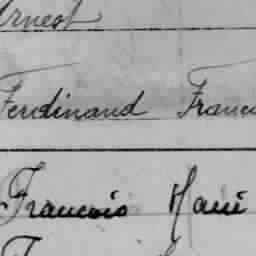 Arnest
Ferdinand Franc
Francois Mari